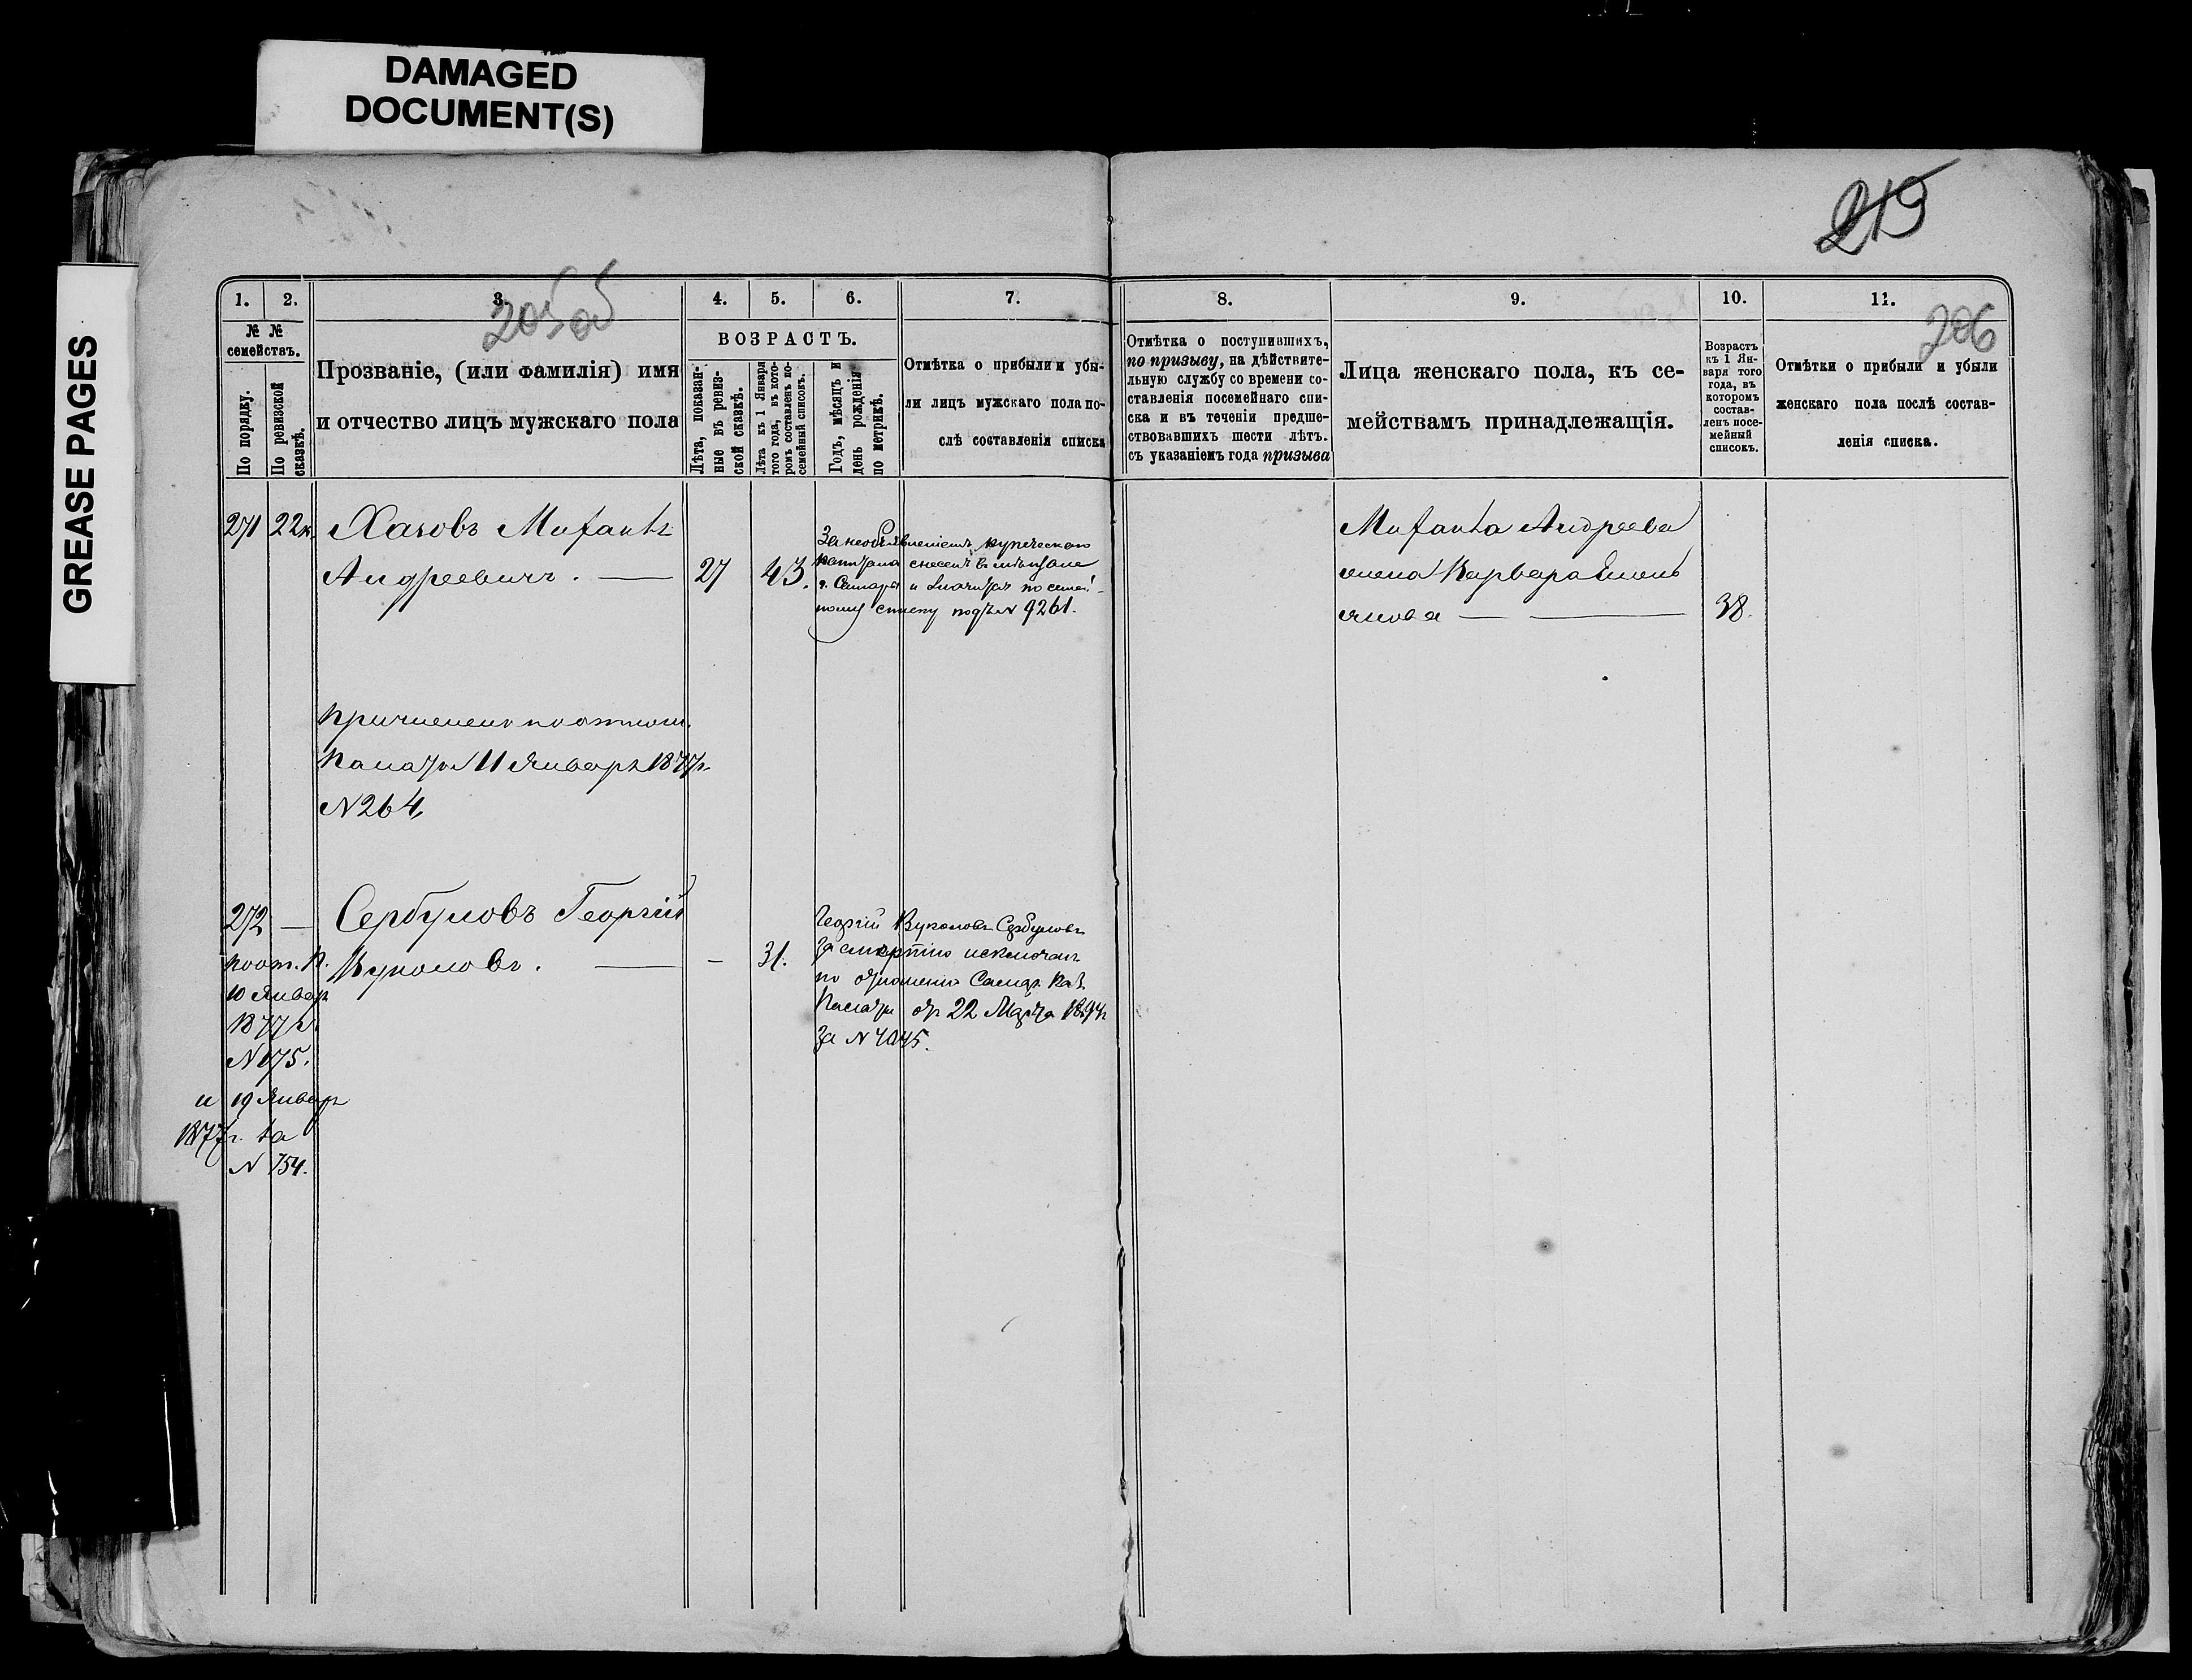 DAMAGED
DOCUMENT(S)
GREASE PAGES
215
205об
206
1. 2. 3. 4. 5. 6. 7. 8. 9. 10. 11.
№ №
семействъ.
По порядку.
По ревизской
сказкѣ.
Прозваніе, (или фамилія) имя
и отчество лицъ мужскаго пола
ВОЗРАСТЪ.
Лѣта, показан-
ные въ ревиз-
ской сказкѣ.
Лѣта къ 1 Января
того года, въ кото-
ромъ составленъ по-
семейный списокъ.
Годъ, мѣсяцъ и
день рожденія
по метрикѣ.
Отмѣтка о прибыли и убы-
ли лицъ мужскаго пола по-
слѣ составленія списка
Отмѣтка о поступившихъ,
по призыву, на дѣйствите-
льную службу со времени со-
ставленія посемейнаго спи-
ска и въ теченіи предше-
ствовавшихъ шести лѣтъ.
съ указаніемъ года призыва
Лица женскаго пола, къ се-
мействамъ принадлежащія.
Возрастъ
къ 1 Ян-
варя того
года, въ
которомъ
состав-
ленъ посе-
мейный
списокъ.
Отмѣтки о прибыли и убыли
женскаго пола послѣ состав-
ленія списка.
271 22
Андреевичъ. — 27 43.
За необъявленіемъ купеческаго
капитала снесенъ въ мѣщане
г. Самары и значится по семей-
ному списку подъ № 9261.
Андреева
жена Варвара Емель
янова — — 38.
Причислен по отнош.
Палаты 11 Января 1877г.
№ 264,
272 — Сербуловъ Георгій
Вуколовъ. — – 31.
по от. П.
10 Январ
1877 г.
№ 175.
и 19 Январ
1877г. за
№ 754.
Георгій Вуколовъ Сербуловъ
за смертію исключенъ
по отношенію Самар. Каз.
Палаты от 22 Марта 1894г
за № 4045.